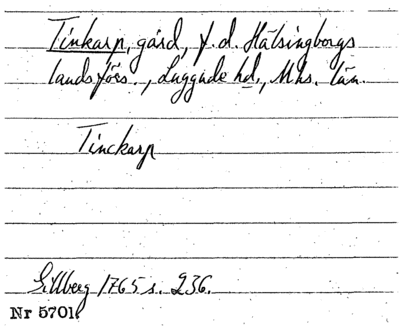 Tinkarp, gård, f.d. Hälsingborgs
landsförs., Luggude hd., Mhs. län.
Tinckarp
Gillberg 1765 s. 236.
Nr 5701